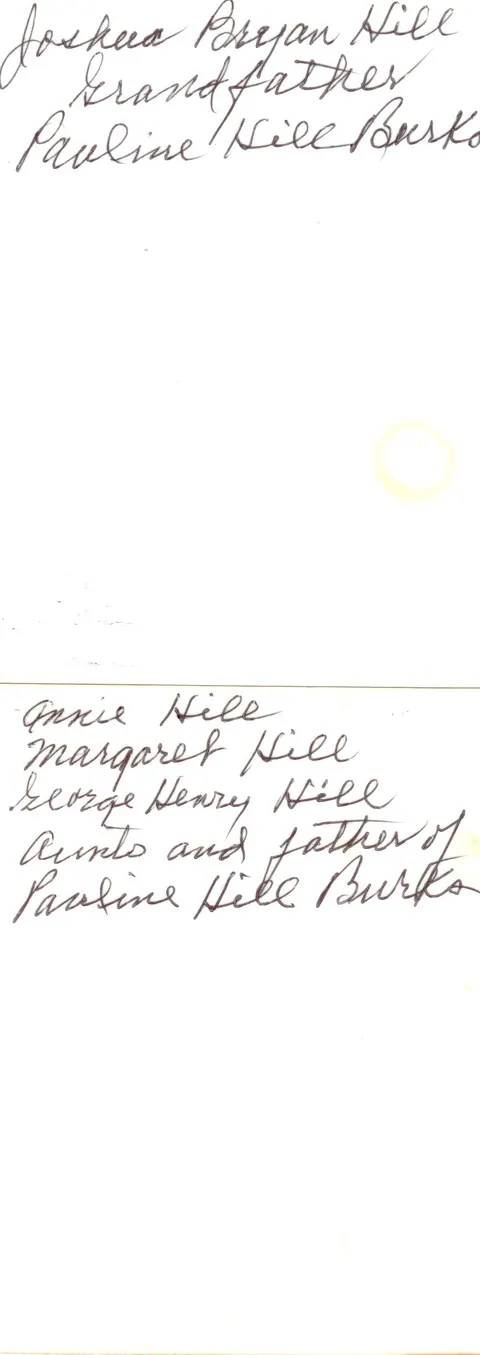 Joshua Bryan Hill
Grandfather
Pauline Hill Burks
Annie Hill
Margaret Hill
George Henry Hill
Aunts and father of
Pauline Hill Burks